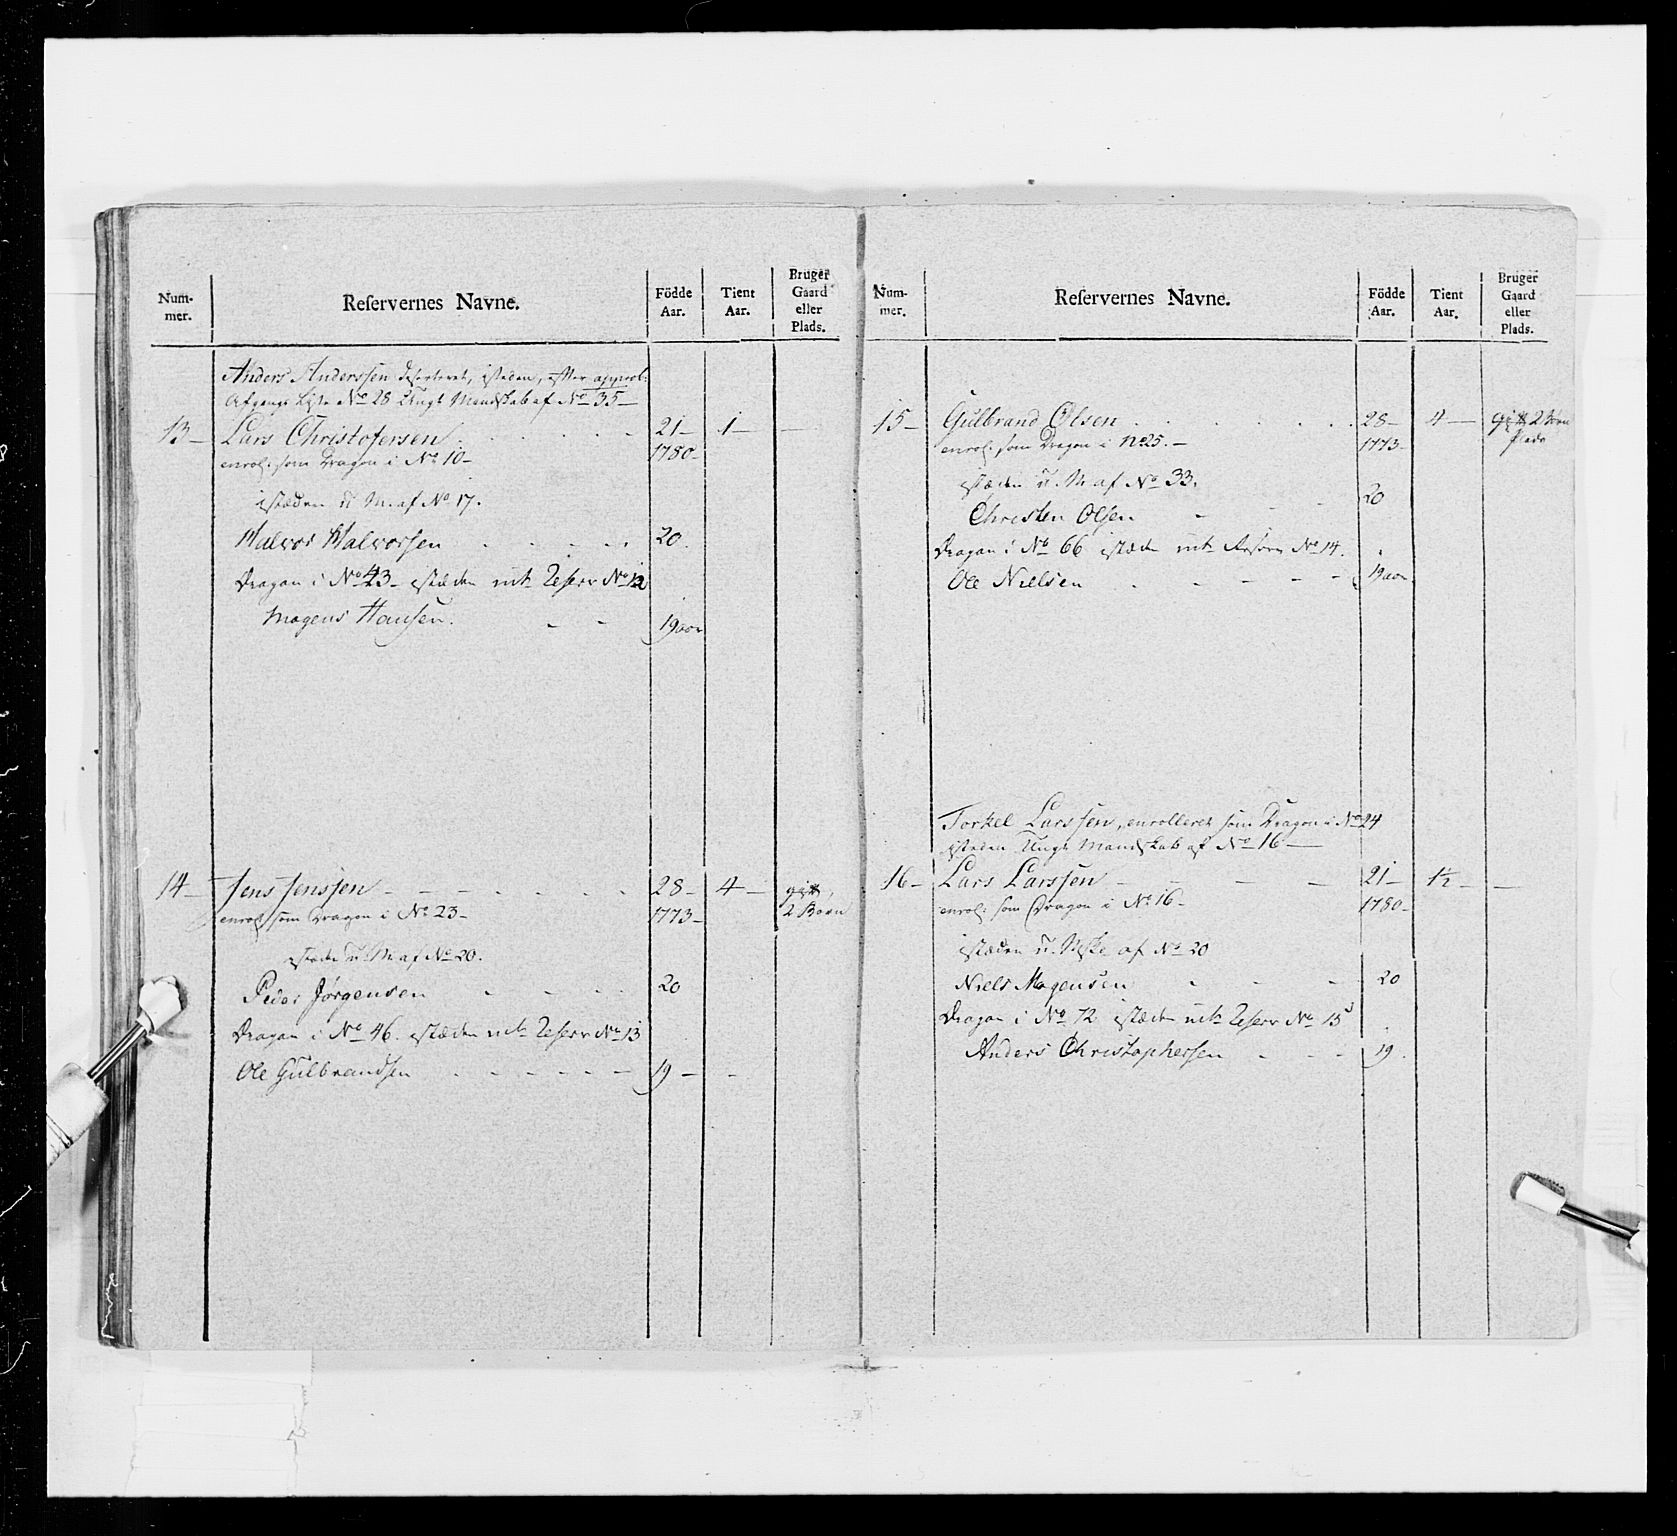 Num-
mer.
Reservernes Navne.
Födde
Aar.
Tient
Aar.
Bruger
Gaard
eller
Plads.
Anders Anderssen deserteret, isteden, efter approb:
Afgangs Liste No 28 Ungt Mandskab af No 35 —
13 — Lars Christofersen . . . . . 21 — 1 — —
enrol: som Dragon i No 10 — 1780 —
istæden U M. af No 17.
Halvor Halvorsen . . . . . 20.
Dragon i No 43 — istæden Reserv No 12
Mogens Hansen. - - 19 aar
14 — Jens Jenssen - - - - - 28 — 4 — gift,
enrol: som Dragon i No 23 — 1773 — 2 Børn
istæden U: M af No 20.
Peder Jørgensen - - - - 20
Dragon i No 46. istæden Reserv No 13
Ole Gulbrandsen - - - - - 19 — -
Num-
mer.
Reservernes Navne.
Födde
Aar.
Tient
Aar.
Bruger
Gaard
eller
Plads.
15 — Gulbrand Olsen . . . . . 28 — 4 — gift 2 Børn
enrol: som Dragon i No 25. — 1773 — Plads
istæden U. M af No 33.
Christen Olsen - - - 20
Dragon i No 66 istæden Reserv No 14.
Ole Nielsen - - - - 19 aar
Torkel Larssen, enrolleret som Dragon i No 24
isteden Ungt Mandskab af No 16 —
16 — Lars Larssen — — — 21 — 1½ — —
enrol: som Dragon i No 16 — 1780 —
istæden U. Mske af No 20
Niels Mogensen - - - 20
Dragon i No 72 istæden Reserv No 15
Anders Christophersen - - - 19.